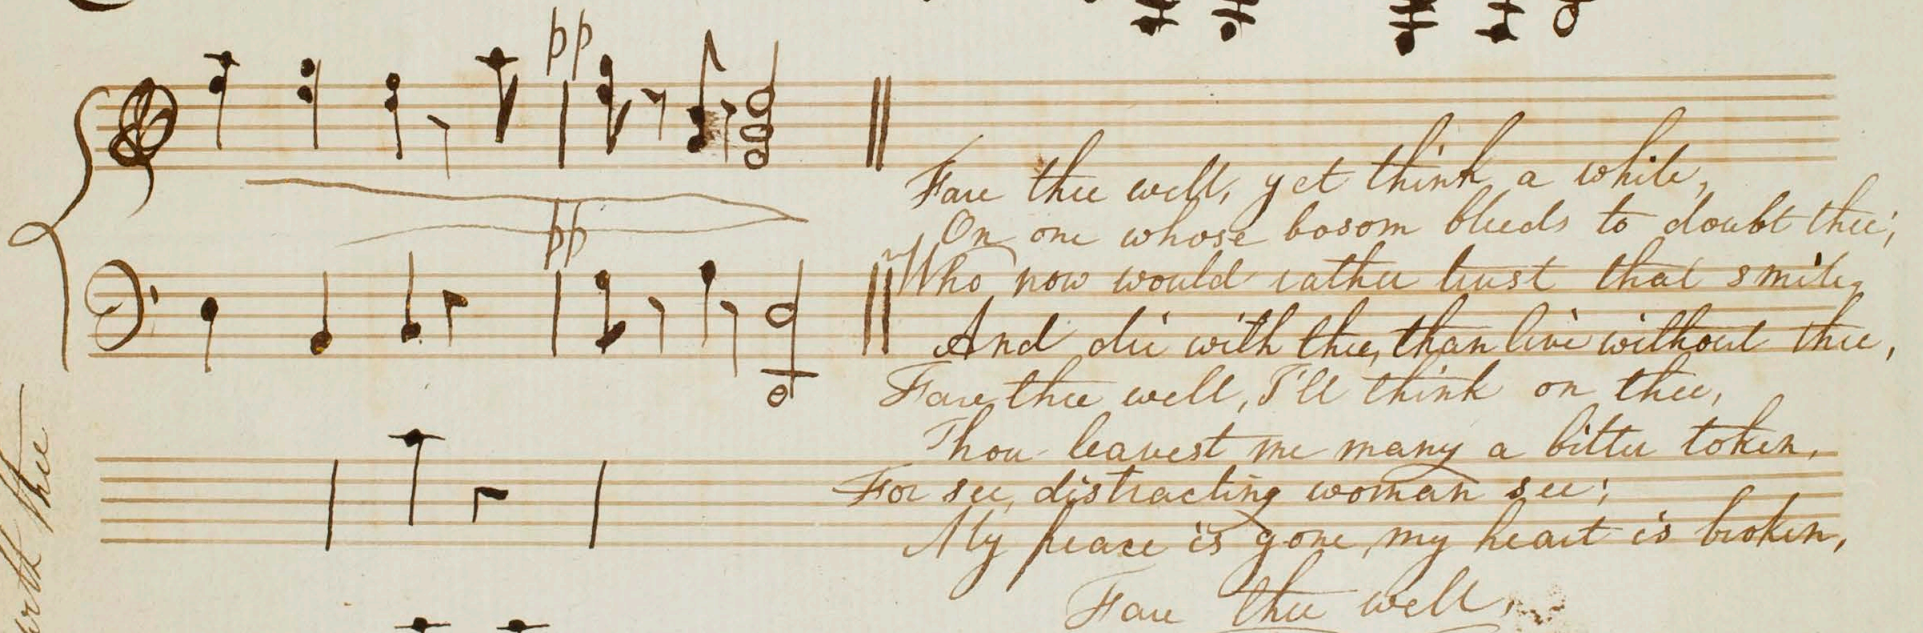 pp
pp
Fare thee well, yet think a while,
On one whose bosom bleeds to doubt thee;
Who now would rather trust that smile,
And die with thee, than live without thee,
Fare thee well, I'll think on thee,
Thou leavest me many a bitter token,
For see, distracting woman see;
My peace is gone, my heart is broken,
Fare thee well,
thee